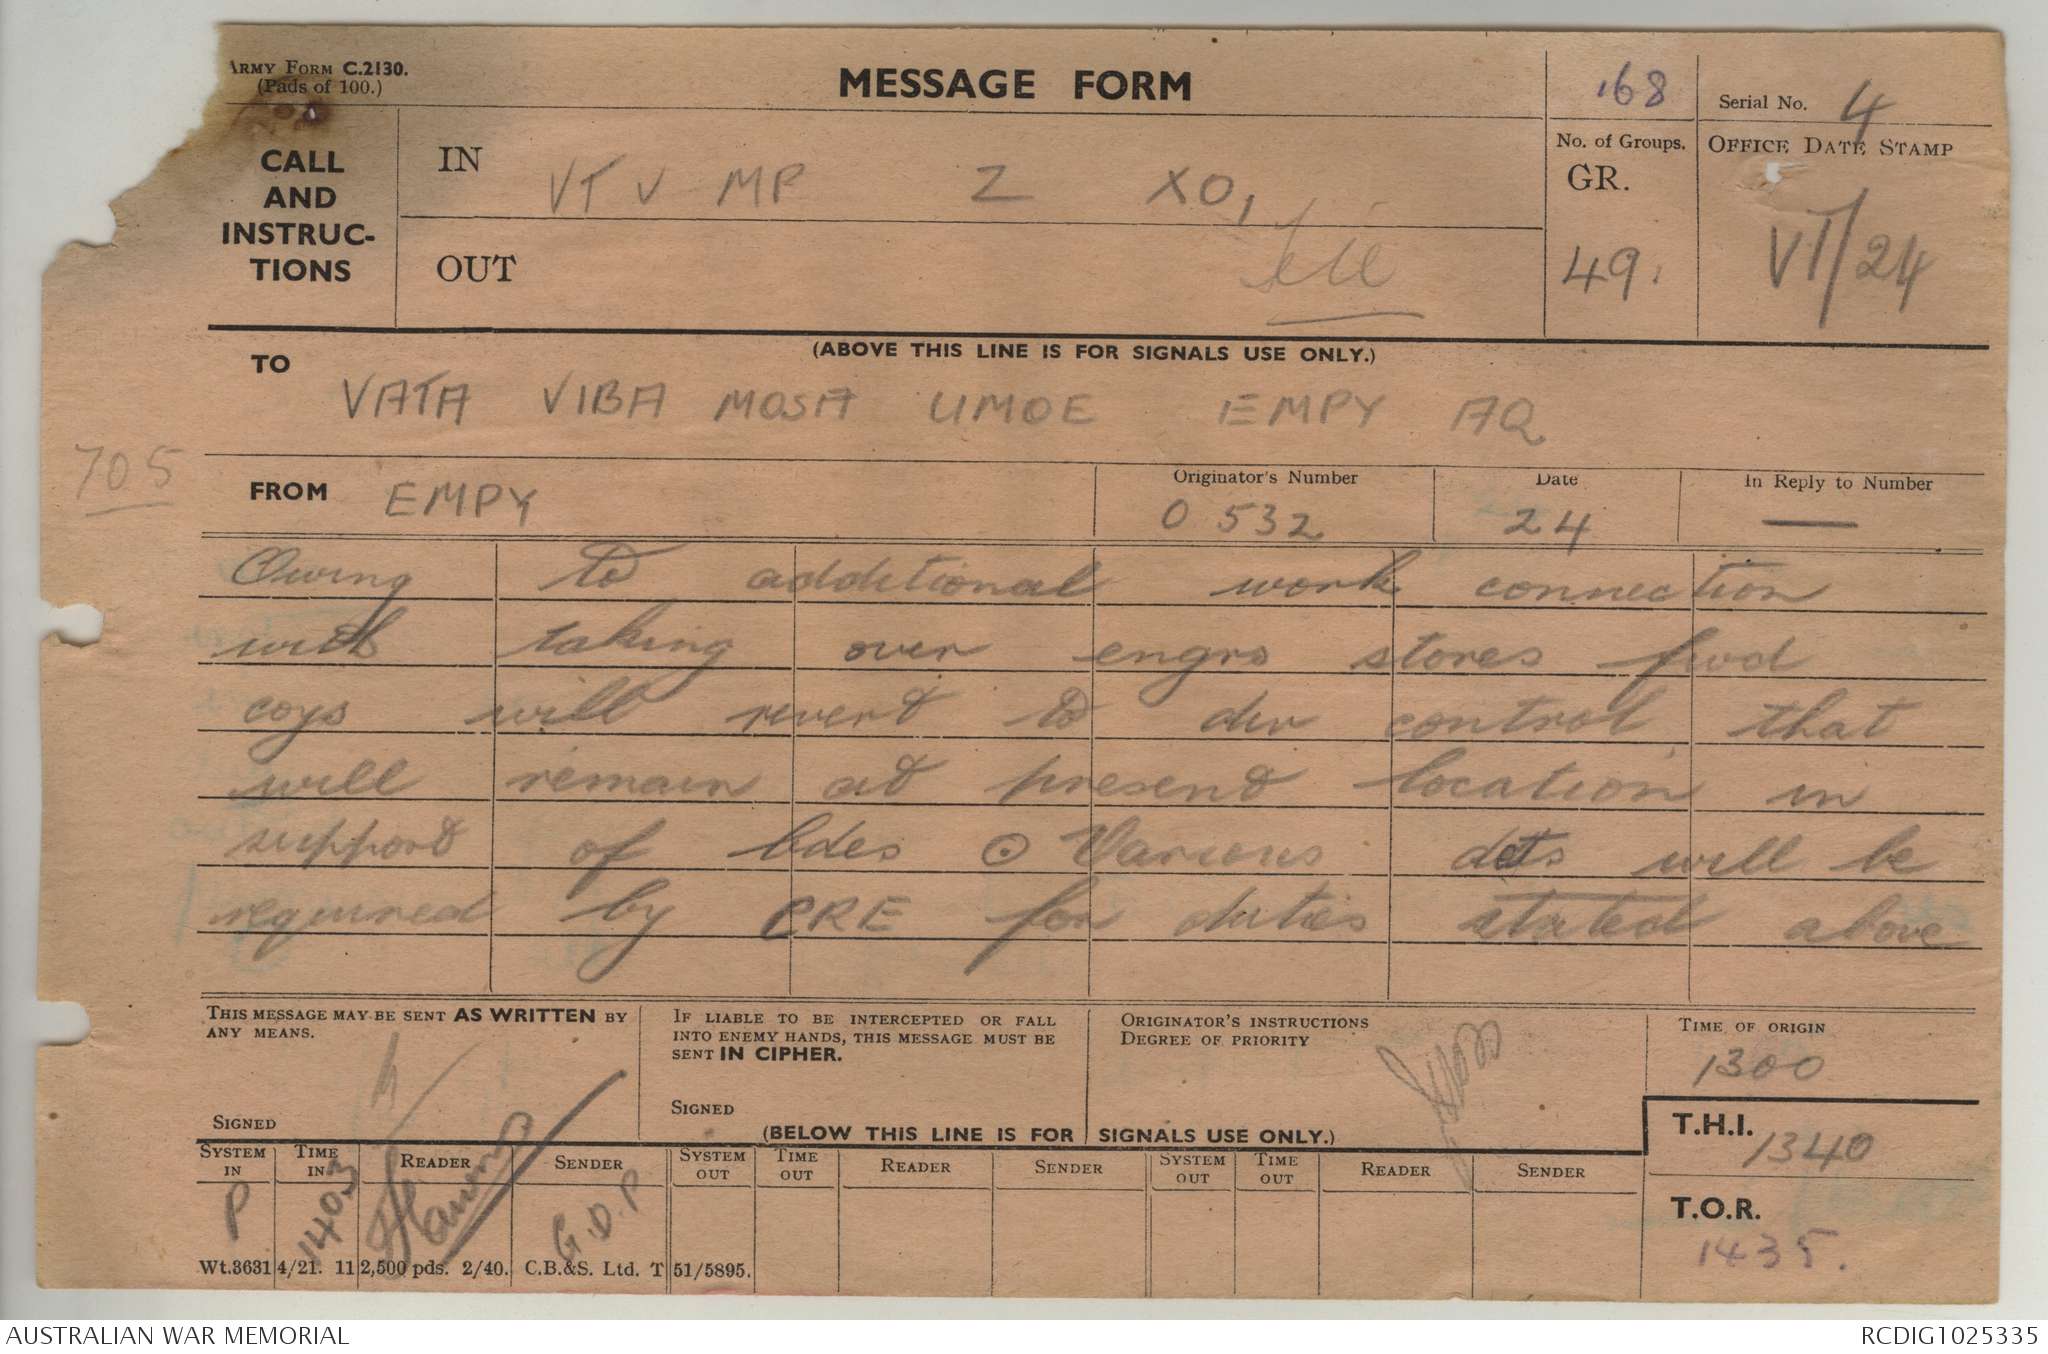 ARMY FORM C.2130.
(Pads of 100.)
MESSAGE FORM
168
Serial No. 4
CALL
AND
INSTRUC-
TIONS
IN VTV MP Z XO,
OUT
No. of Groups.
GR.
49.
OFFICE DATE STAMP
VT/24
(ABOVE THIS LINE IS FOR SIGNALS USE ONLY.)
TO VATA VIBA MOSA UMOE EMPY AQ
705
FROM EMPY
Originator's Number
0 532
Date
24
In Reply to Number
—
Owing to additional work connection
with taking over engrs stores fwd
coys will revert to div control that
will remain at present location in
support of bdes ⊙ Various dets will be
required by CRE for duties stated above
THIS MESSAGE MAY BE SENT AS WRITTEN BY
ANY MEANS.
SIGNED
IF LIABLE TO BE INTERCEPTED OR FALL
INTO ENEMY HANDS, THIS MESSAGE MUST BE
SENT IN CIPHER.
SIGNED
ORIGINATOR'S INSTRUCTIONS
DEGREE OF PRIORITY
TIME OF ORIGIN
1300
(BELOW THIS LINE IS FOR SIGNALS USE ONLY.)
T.H.I. 1340
T.O.R.
1435.
SYSTEM IN TIME IN READER SENDER SYSTEM OUT TIME OUT READER SENDER SYSTEM OUT TIME OUT READER SENDER
P 1403 G.D.P
Wt.3631 4/21. 11 2,500 pds. 2/40. C.B.&S. Ltd. T 51/5895.
AUSTRALIAN WAR MEMORIAL
RCDIG1025335